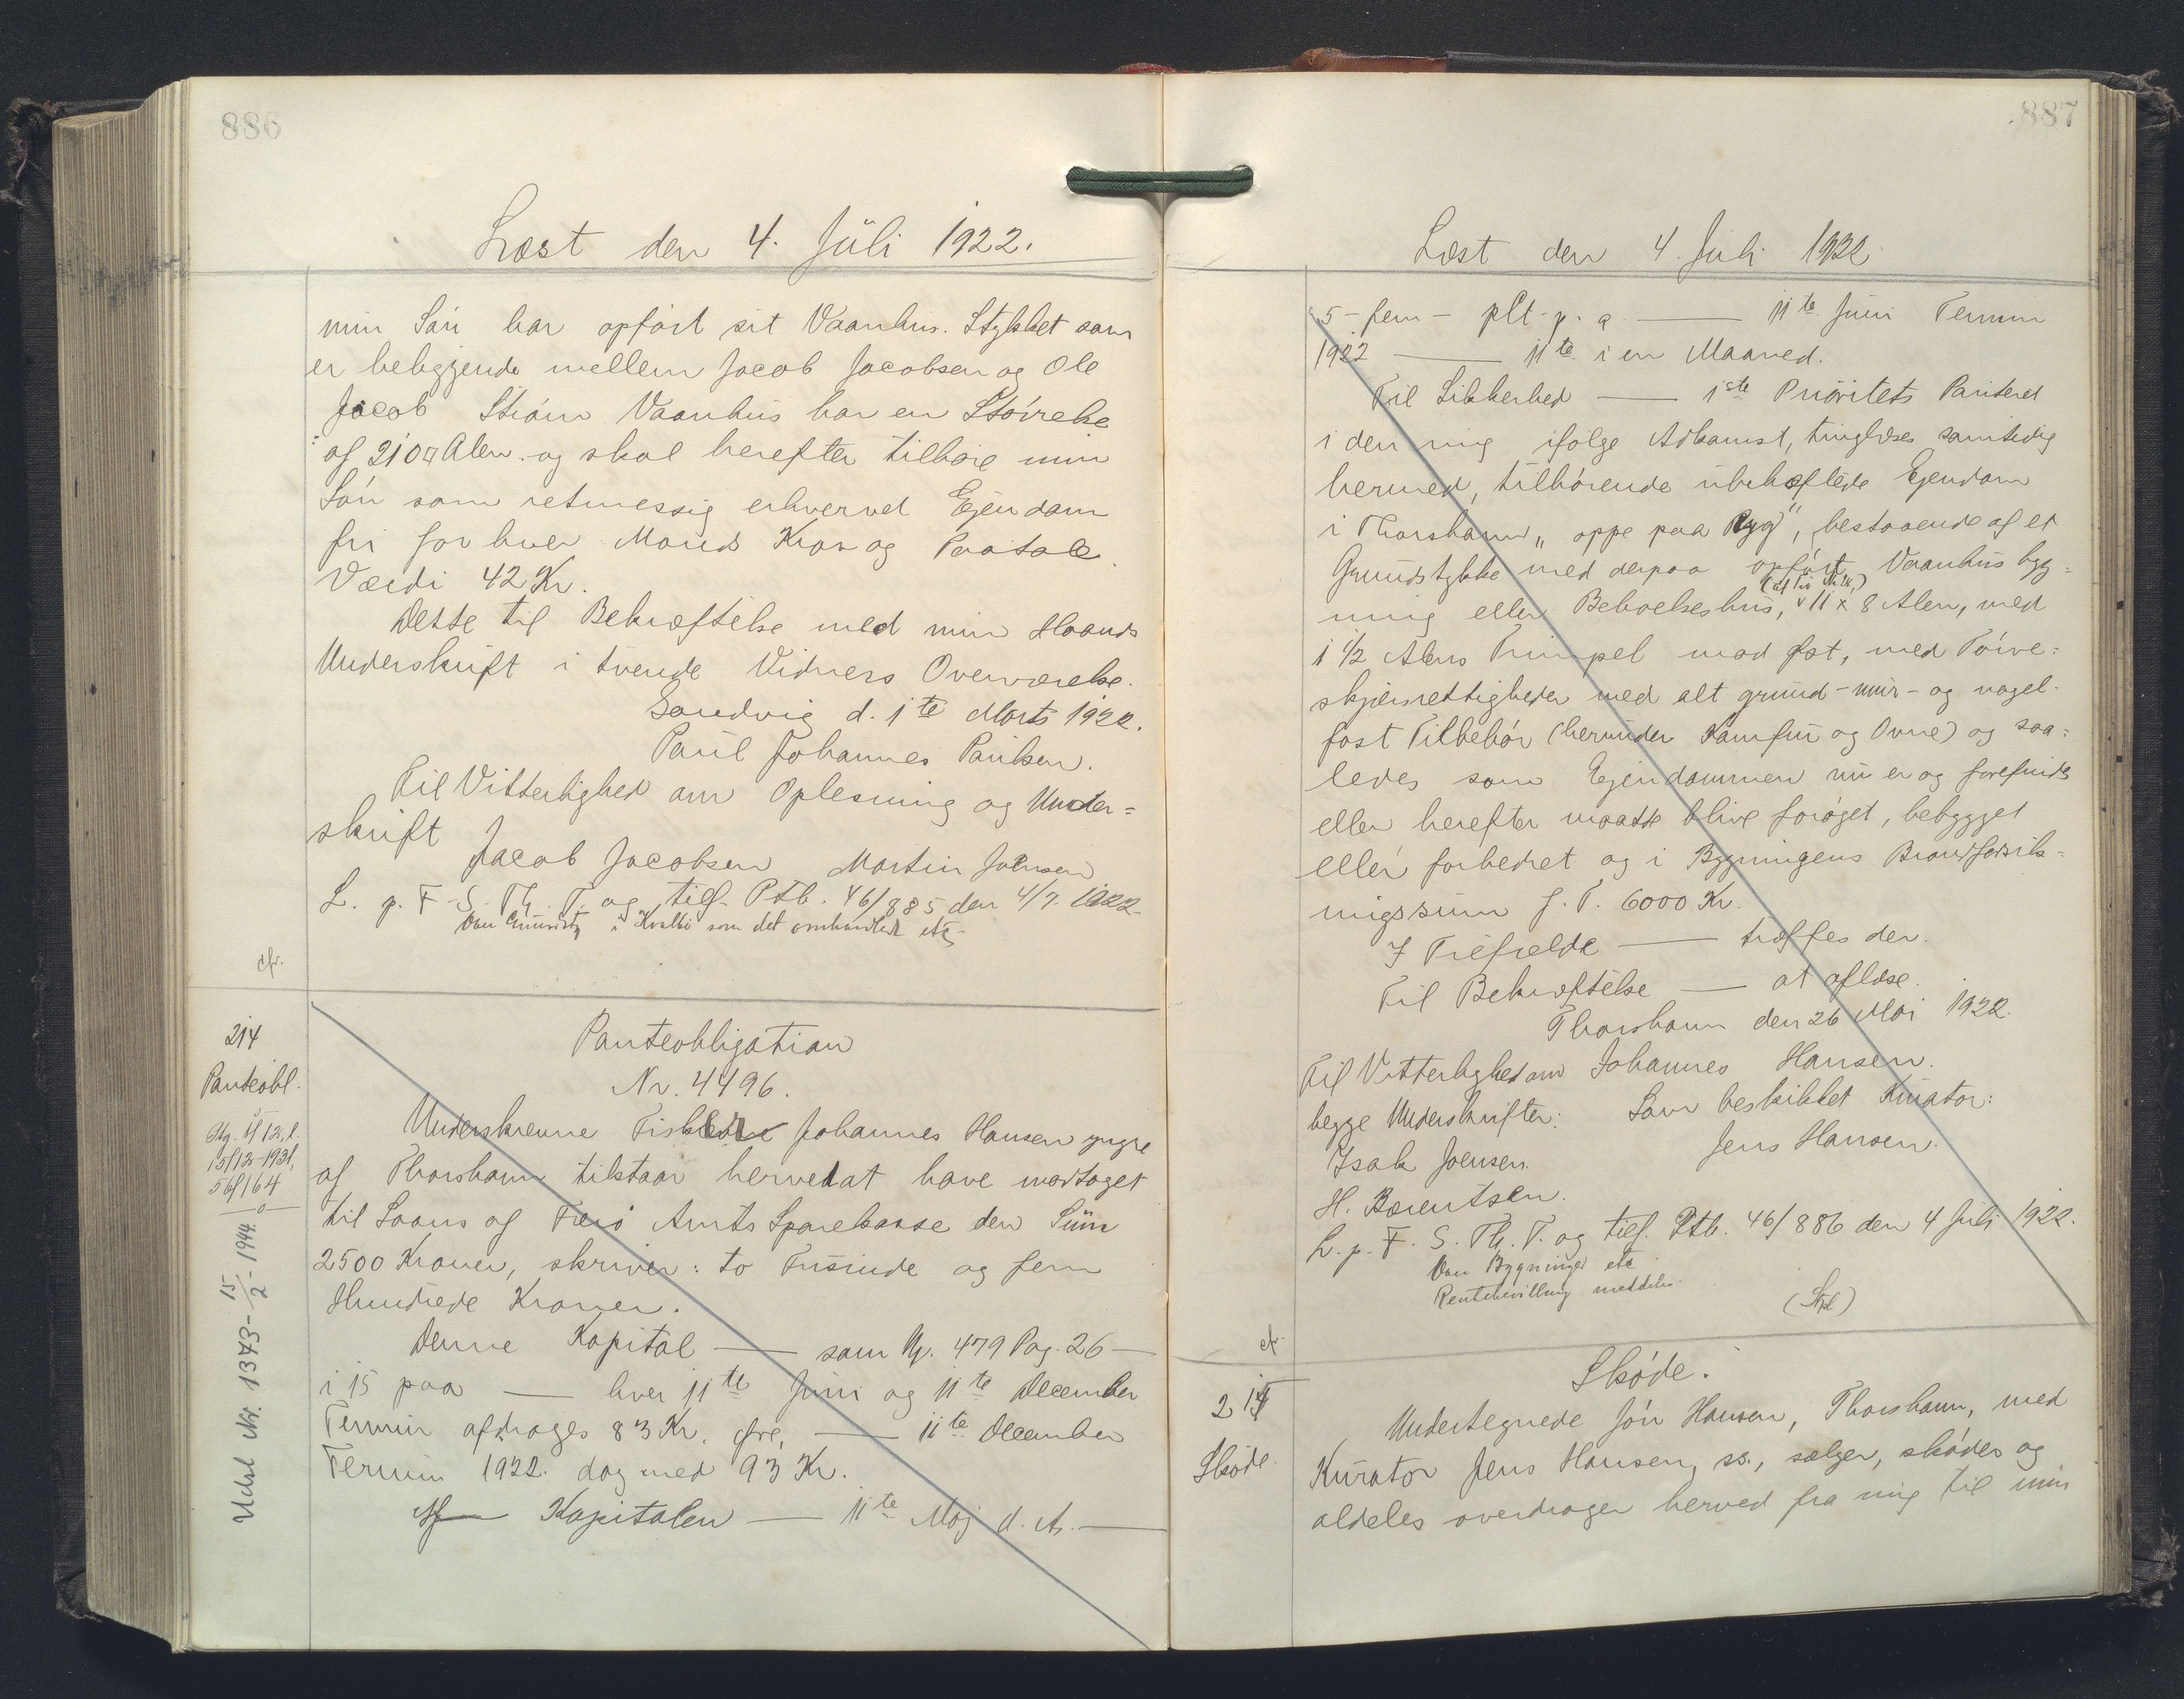 886
Læst den 4. Juli 1922.
min Sön har opfört sit Vaanhus. Stykket som
er beliggende mellem Jacob Jacobsen og Ole
Jacob Ström Vaanhus har en Störrelse
af 210 □ Alen. og skal herefter tilhöre min
Sön som retmessig erhvervet Ejendom
fri for hver Mands Krav og Paatale.
Værdi 42 Kr.
Dette til Bekræftelse med min Haands
Underskrift i tvende Vidners Overværelse.
Sandvig d. 1te Marts 1922.
Paul Johannes Paulsen.
Til Vitterlighed om Oplesning og Under=
skrift
Jacob Jacobsen Martin Joensen
L. p. F. S. Th. T. og tilf. Ptb. 46/885 den 4/7. 1922.
i Kvalbö som det omhandlede etc.
cfr.
214
Panteobl.
15/12-1931,
56/164
Udsl Nr. 1373 - 15/2 - 1944.
Panteobligation
Nr. 4496.
Underskrevne Fisker Johannes Hansen yngre
af Thorshavn tilstaar herved at have modtaget
til Laans af Færö Amts Sparekasse den Sum
2500 Kroner, skriver: to Tusinde og fem
Hundrede Kroner.
Denne Kapital — som Nr. 479 Pag. 26 —
i 15 paa — hver 11te Juni og 11te December
Termin afdrages 83 Kr. — 11te December
Termin 1922. dog med 93 Kr.
Af Kapitalen — 11te Maj d. A. —
887
Læst den 4. Juli 1922.
5 - fem - pCt. p. a. — 11te Juni Termin
1922 — 11te i en Maaned.
Til Sikkerhed — 1ste Prioritets Panteret
i den mig ifölge Adkomst, tinglæses samtidig
hermed, tilhörende ubehæftede Ejendom
i Thorshavn „oppe paa Ryg", bestaaende af et
Grundstykke med derpaa opfört Vaanhus byg=
ning eller Beboelseshus, 11 x 8 Alen, med
1 1/2 Alens Trimpel mod öst, med Törve=
skjærsrettigheder med alt grund- mur- og nagel-
fast Tilbehör (herunder Komfur og Ovne) og saa=
ledes som Ejendommen nu er og forefindes
eller herefter maatte blive foröget, bebygget
eller forbedret og i Bygningens Brandforsik=
ringssum f. T. 6000 Kr.
I Tilfælde — træffes der.
Til Bekræftelse — at aflæse.
Thorshavn den 26 Maj 1922.
Til Vitterlighed om Johannes Hansen.
begge Underskrifter: Som beskikket Kurator:
Isak Joensen. Jens Hansen.
H. Berentsen.
L. p. F. S. Th. T. og tilf. Ptb. 46/886 den 4 Juli 1922.
Bygninger etc
Rentebevilling meddeles.
cfr.
Sköde.
215
Sköde.
Undertegnede Jón Hansen, Thorshavn, med
Kurator Jens Hansen, ss., sælger, sköder og
aldeles overdrager herved fra mig til min